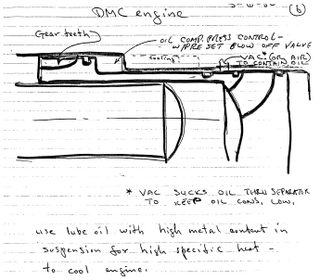 DMC engine
6
Gear teeth
OIL COMP. PRESS CONTROL -
W/PRE SET BLOW OFF VALVE
cooling
VAC* (OR AIR)
TO CONTAIN OIL
* VAC SUCKS OIL THRU SEPARATER
TO KEEP OIL CONS, LOW,
use lube oil with high metal content in
suspension for high specific heat -
to cool engine.